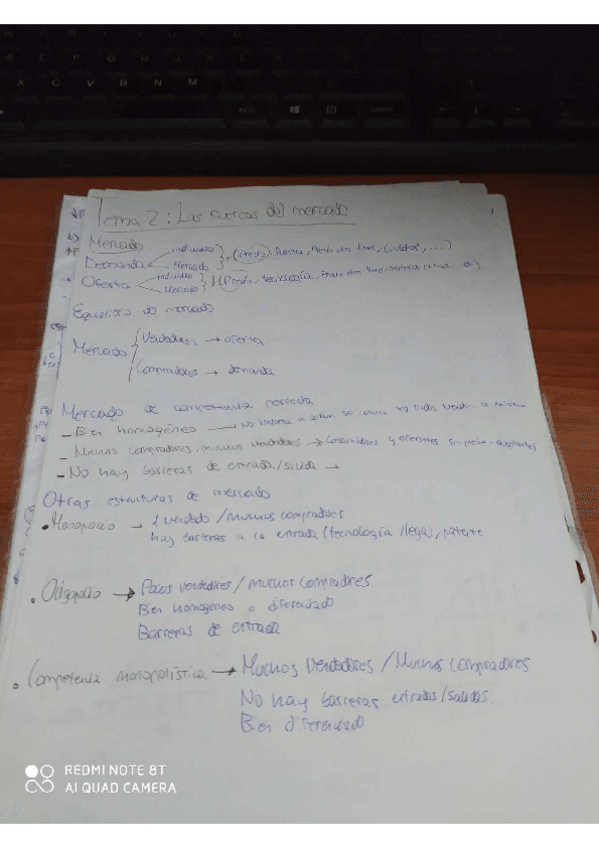 Tema 2: Las fuerzas del mercado
Mercado
Demanda individual Mercado (Precio, Renta, Precio otros bienes, Gustos, ...)
Oferta individual Mercado (Precio, tecnología, Precio otros
Equilibrio del mercado
Mercado Vendedores → oferta
Compradores → demanda
Mercado de competencia perfecta
- Bien homogéneo → No importa a
- Muchos compradores, muchos vendedores → Consumidores y oferentes son precio-aceptantes
- No hay barreras de entrada/salida →
Otras estructuras de mercado
• Monopolio → 1 vendedo / muchos compradores
hay barreras a la entrada (tecnología / legal, patente
• Oligopolio → Pocos vendedores / muchos compradores
Bien homogéneo o diferenciado
Barreras de entrada
• Competencia monopolística → Muchos vendedores / Muchos compradores
No hay barreras entradas/salidas.
Bien diferenciado
REDMI NOTE 8T
AI QUAD CAMERA